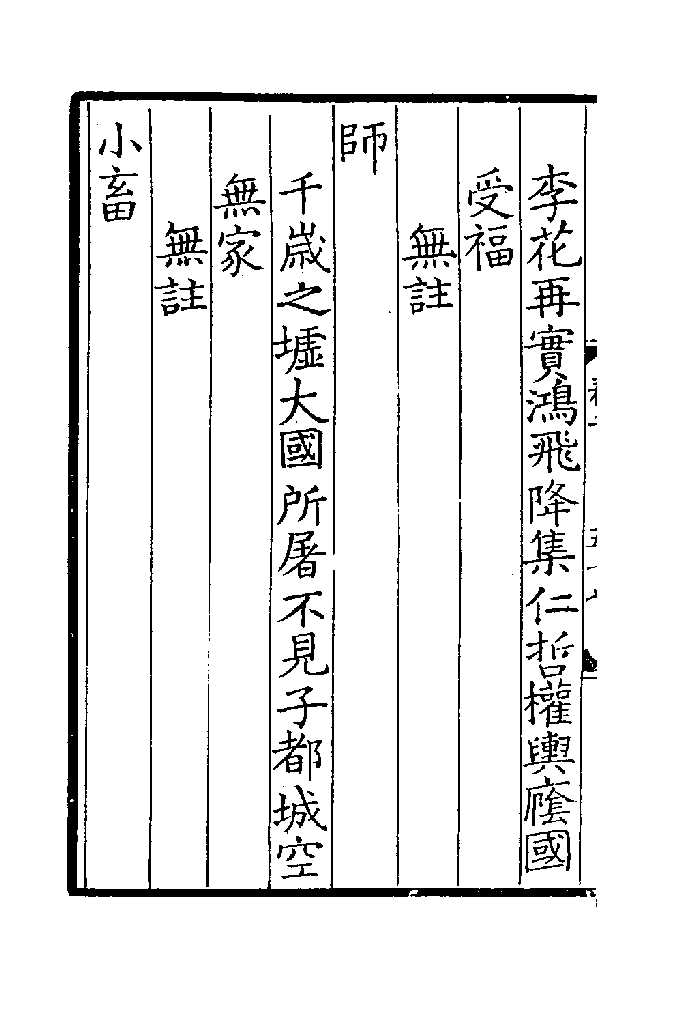 李花再實鴻飛降集仁哲權輿廕國
受福
無註
師
千歲之墟大國所屠不見子都城空
無家
無註
小畜